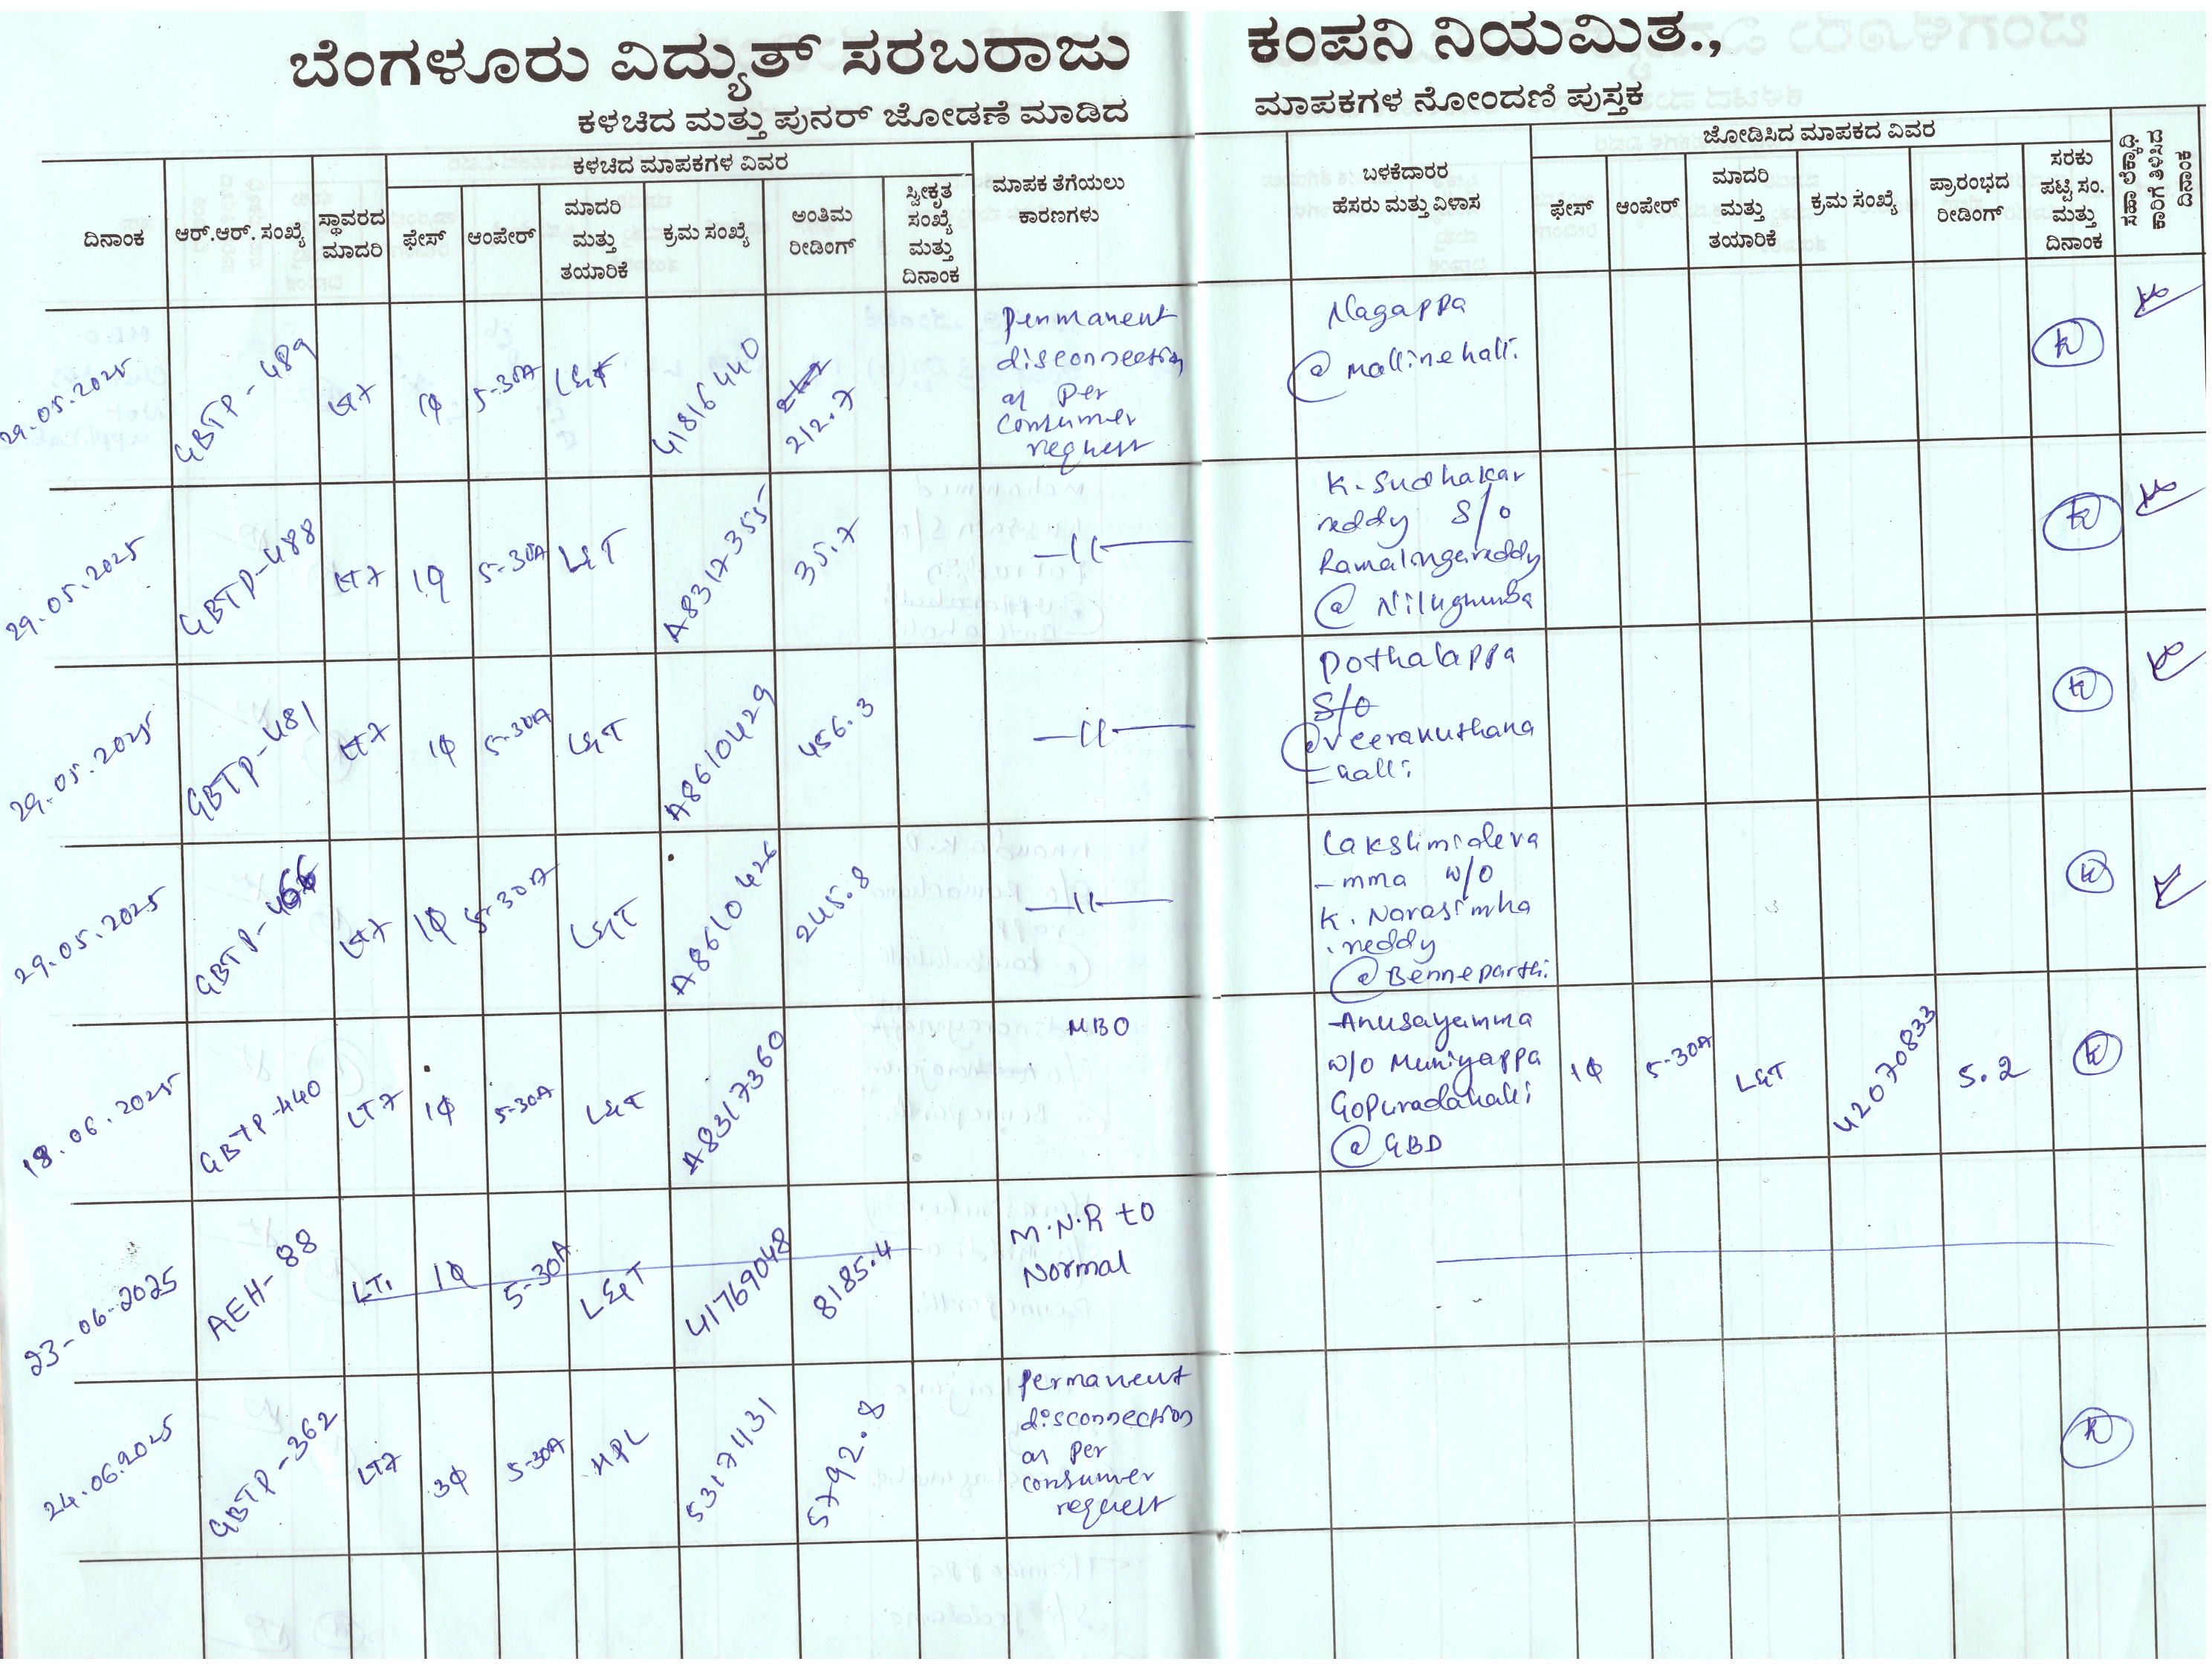 ಬೆಂಗಳೂರು ವಿದ್ಯುತ್ ಸರಬರಾಜು ಕಂಪನಿ ನಿಯಮಿತ.,
ಕಳಚಿದ ಮತ್ತು ಪುನರ್ ಜೋಡಣೆ ಮಾಡಿದ ಮಾಪಕಗಳ ನೋಂದಣಿ ಪುಸ್ತಕ
ದಿನಾಂಕ
ಆರ್.ಆರ್. ಸಂಖ್ಯೆ
ಸ್ಥಾವರದ
ಮಾದರಿ
ಕಳಚಿದ ಮಾಪಕಗಳ ವಿವರ
ಫೇಸ್
ಆಂಪೇರ್
ಮಾದರಿ
ಮತ್ತು
ತಯಾರಿಕೆ
ಕ್ರಮ ಸಂಖ್ಯೆ
ಅಂತಿಮ
ರೀಡಿಂಗ್
ಸ್ವೀಕೃತ
ಸಂಖ್ಯೆ
ಮತ್ತು
ದಿನಾಂಕ
ಮಾಪಕ ತೆಗೆಯಲು
ಕಾರಣಗಳು
ಬಳಕೆದಾರರ
ಹೆಸರು ಮತ್ತು ವಿಳಾಸ
ಜೋಡಿಸಿದ ಮಾಪಕದ ವಿವರ
ಫೇಸ್
ಆಂಪೇರ್
ಮಾದರಿ
ಮತ್ತು
ತಯಾರಿಕೆ
ಕ್ರಮ ಸಂಖ್ಯೆ
ಪ್ರಾರಂಭದ
ರೀಡಿಂಗ್
ಸರಕು
ಪಟ್ಟಿ ಸಂ.
ಮತ್ತು
ದಿನಾಂಕ
ದಿನಾಂಕ
29.05.2025 GBTP-489 LT7 1Φ 5-30A L&T 41816440 212.7
Permanent
disconnection
as per
consumer
request
Nagappa
@ mallinehalli.
29.05.2025 GBTP-488 LT7 1Φ 5-30A L&T A8317355 35.7 —11—
K. Sudhakar
reddy S/o
Ramalingareddy
@
29.05.2025 GBTP-481 LT7 1Φ 5-30A L&T A8610429 456.3 —11—
Pothalappa
S/o
@
halli
29.05.2025 GBTP-466 LT7 1Φ 5-30A L&T A8610426 245.8 —11—
Lakshmideva
-mma W/o
K. Narasimha
reddy
@ Benneparthi.
18.06.2025 GBTP-440 LT7 1Φ 5-30A L&T A8317360 MBO
Anusayamma
W/o Muniyappa
Gopuradahalli
@ GBD
1Φ 5-30A L&T 42070833 5.2
23-06-2025 AEH-88 LT1 1Φ 5-30A L&T 41769048 8185.4
M.N.R to
Normal
24.06.2025 GBTP-362 LT7 3Φ 5-30A HPL 53171131 5792.8
Permanent
disconnection
as per
consumer
request